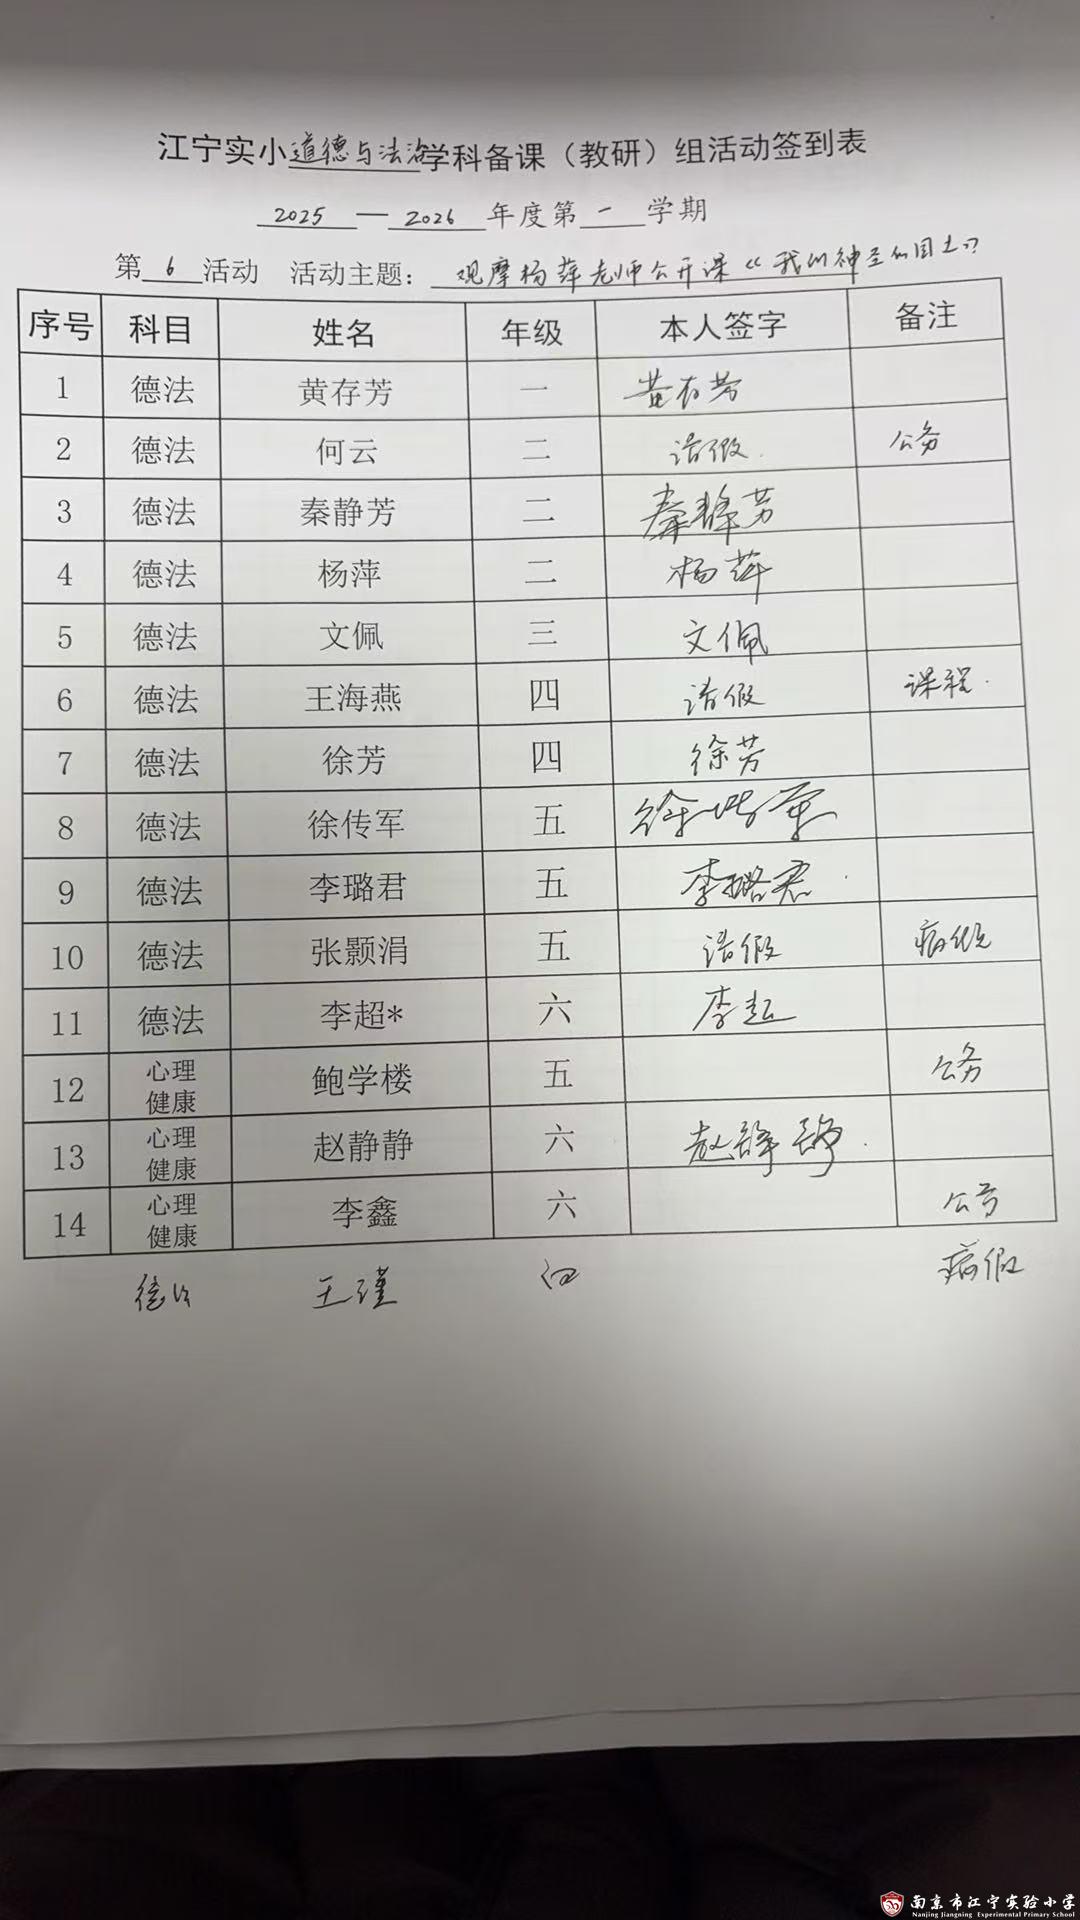 江宁实小道德与法治学科备课（教研）组活动签到表
2025 — 2026 年度第 一 学期
第 6 活动 活动主题：观摩杨萍老师公开课《我们神圣的国土》
序号 科目 姓名 年级 本人签字 备注
1 德法 黄存芳 一 黄存芳
2 德法 何云 二 请假 公务
3 德法 秦静芳 二 秦静芳
4 德法 杨萍 二 杨萍
5 德法 文佩 三 文佩
6 德法 王海燕 四 请假 课程
7 德法 徐芳 四 徐芳
8 德法 徐传军 五 徐传军
9 德法 李璐君 五 李璐君
10 德法 张颢涓 五 请假 病假
11 德法 李超* 六 李超
12 心理健康 鲍学楼 五 公务
13 心理健康 赵静静 六 赵静静
14 心理健康 李鑫 六 公务
德法 王瑾 四 病假
南京市江宁实验小学
Nanjing Jiangning Experimental Primary School